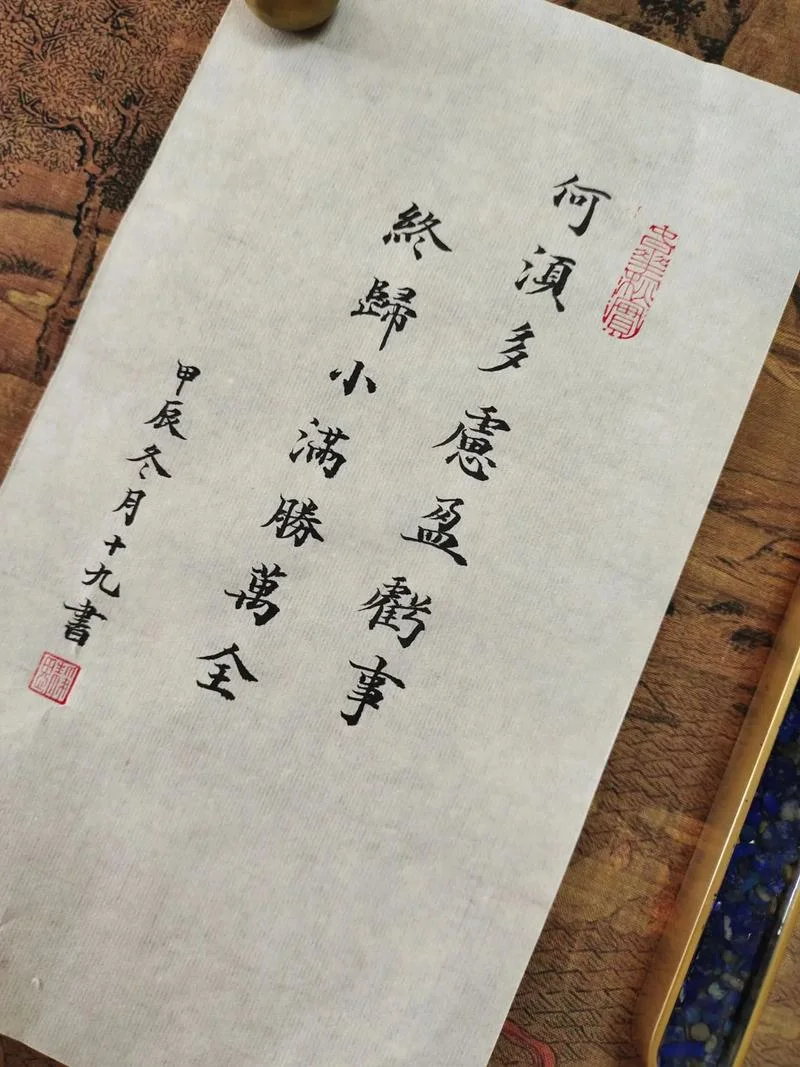 何須多慮盈虧事
終歸小滿勝萬全
甲辰冬月十九書
春華秋實